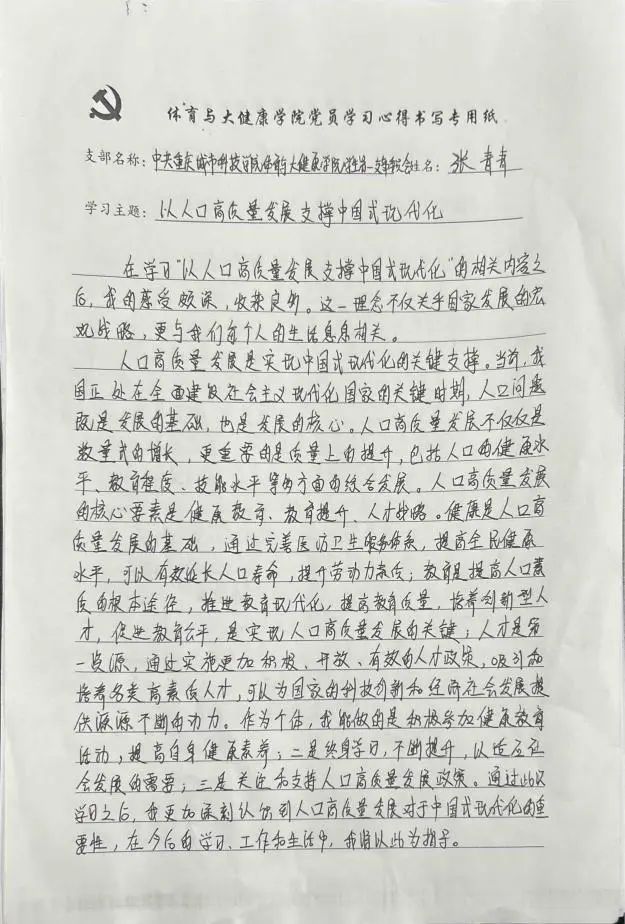 体育与大健康学院党员学习心得书写专用纸
支部名称：中共重庆城市科技学院体育与大健康学院学生第一支部委员会姓名：张青青
学习主题：以人口高质量发展支撑中国式现代化
在学习“以人口高质量发展支撑中国式现代化”的相关内容之
后，我的感受颇深，收获良多。这一理念不仅关乎国家发展的宏
观战略，更与我们每个人的生活息息相关。
人口高质量发展是实现中国式现代化的关键支撑。当前，我
国正处在全面建设社会主义现代化国家的关键时期，人口问题
既是发展的基础，也是发展的核心。人口高质量发展不仅仅是
数量式的增长，更重要的是质量上的提升，包括人口的健康水
平、教育程度、技能水平等多方面的综合发展。人口高质量发展
的核心要素是健康教育、教育提升、人才战略。健康是人口高
质量发展的基础，通过完善医疗卫生服务体系，提高全民健康
水平，可以有效延长人口寿命，提升劳动力素质；教育是提高人口素
质的根本途径，推进教育现代化，提高教育质量，培养创新型人
才，促进教育公平，是实现人口高质量发展的关键；人才是第
一资源，通过实施更加积极、开放、有效的人才政策，吸引和
培养各类高素质人才，可以为国家的科技创新和经济社会发展提
供源源不断的动力。作为个体，我能做的是积极参加健康教育
活动，提高自身健康素养；二是终身学习，不断提升，以适应社
会发展的需要；三是关注和支持人口高质量发展政策。通过此次
学习之后，我更加深刻认识到人口高质量发展对于中国式现代化的重
要性，在今后的学习、工作和生活中，我将以此为指导。